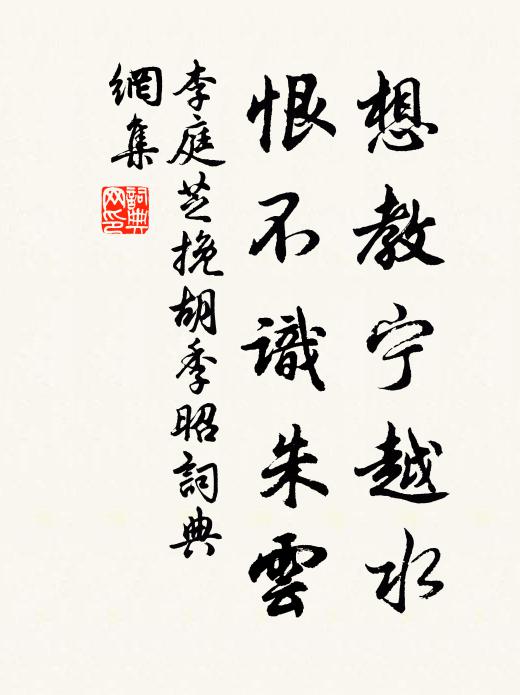 想教宁越水
恨不識朱雲
李庭芝挽胡季昭詞典
網集
詞典网印